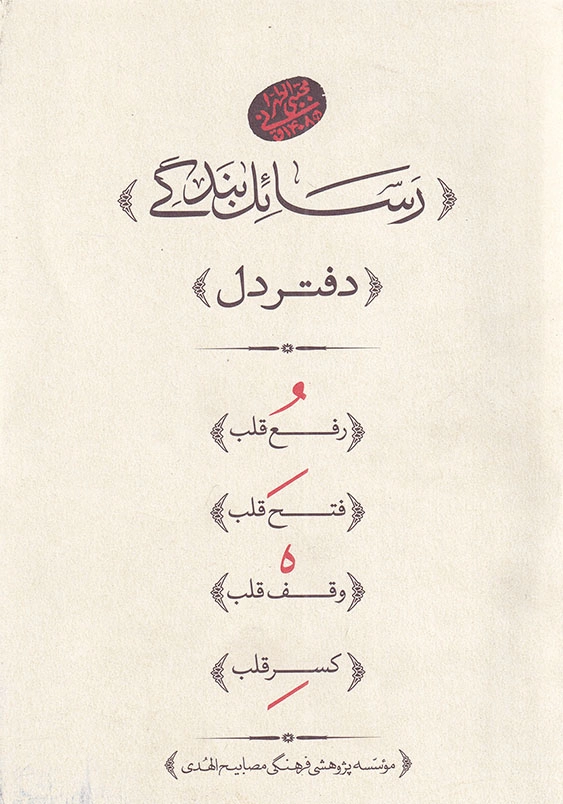 مجتبی الطهرانی ۱۴۰۸ق
رَسَّائِل بَندگے
دفتر دل
رفع قلب
فتح قلب
وقف قلب
کسر قلب
مؤسّسه پژوهشی فرهنگی مصابیح الهُدی